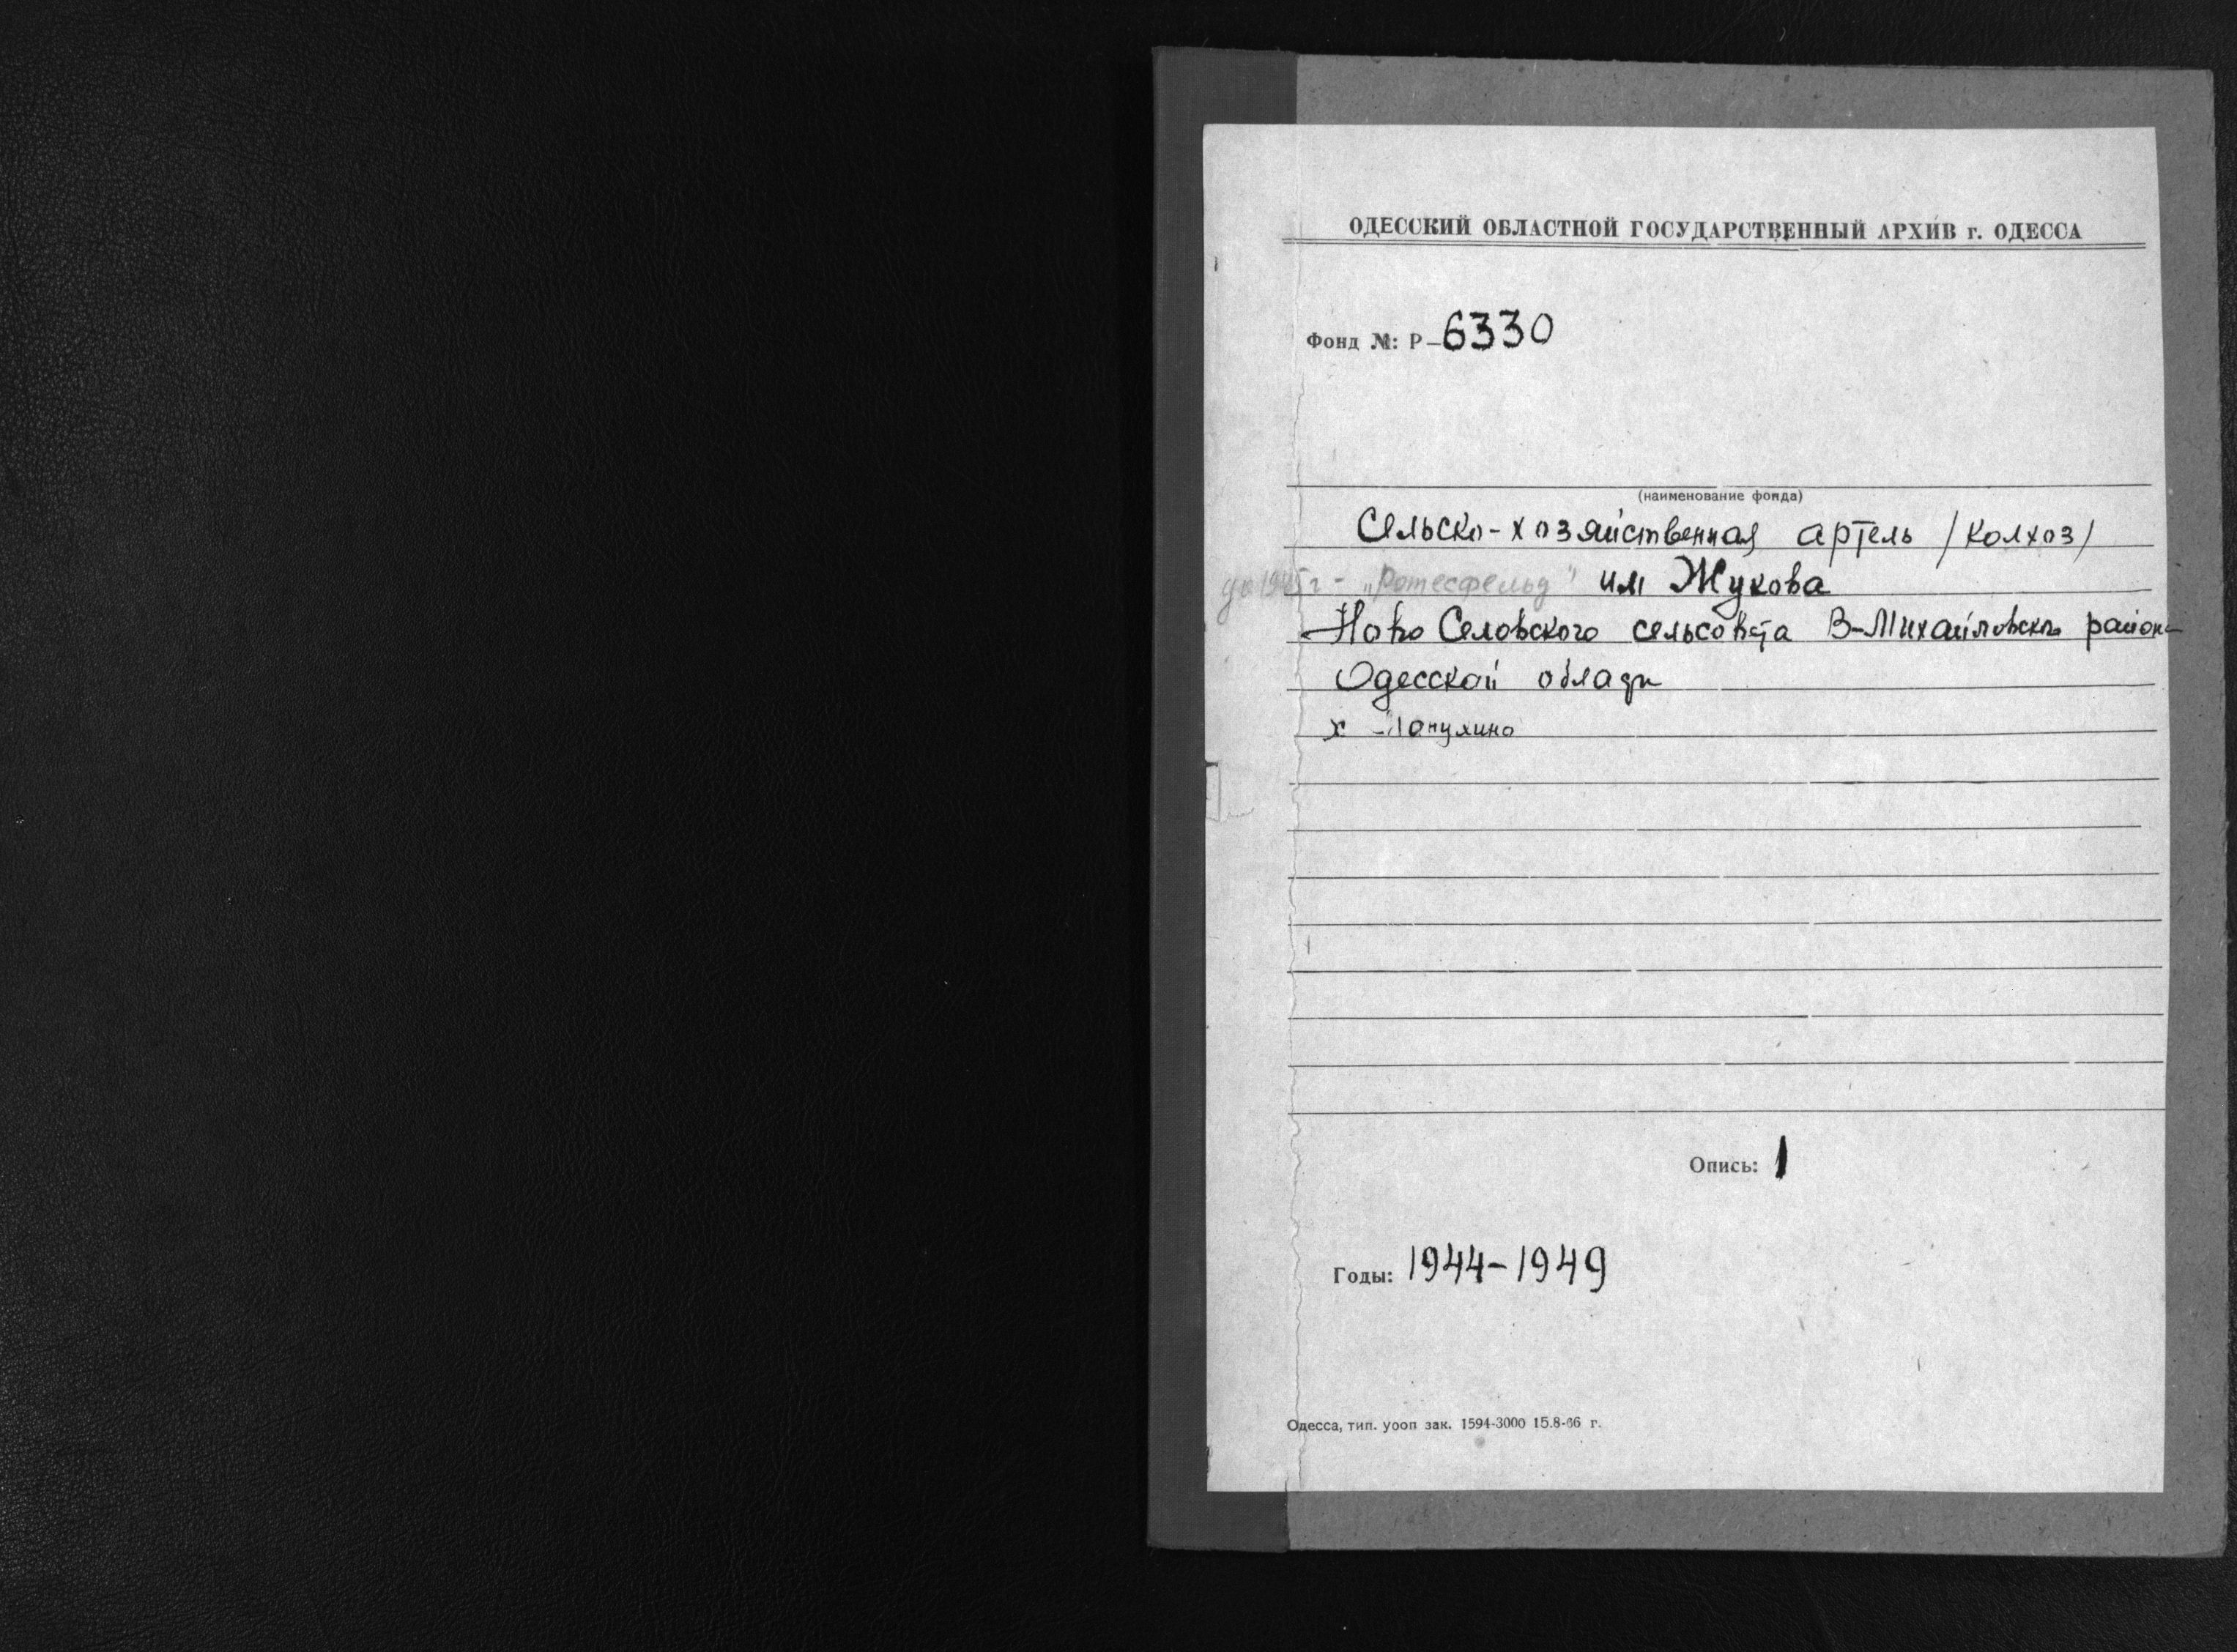 ОДЕССКИЙ ОБЛАСТНОЙ ГОСУДАРСТВЕННЫЙ АРХИВ г. ОДЕССА
Фонд №: Р-6330
(наименование фонда)
Сельско-хозяйственная артель /колхоз/
до 1945 г - „Ротесфельд" им Жукова
Ново Селовского сельсовета В-Михайловского район
Одесской области
х Лопухино
Опись: 1
Годы: 1944-1949
Одесса, тип. уооп зак. 1594-3000 15.8-66 г.